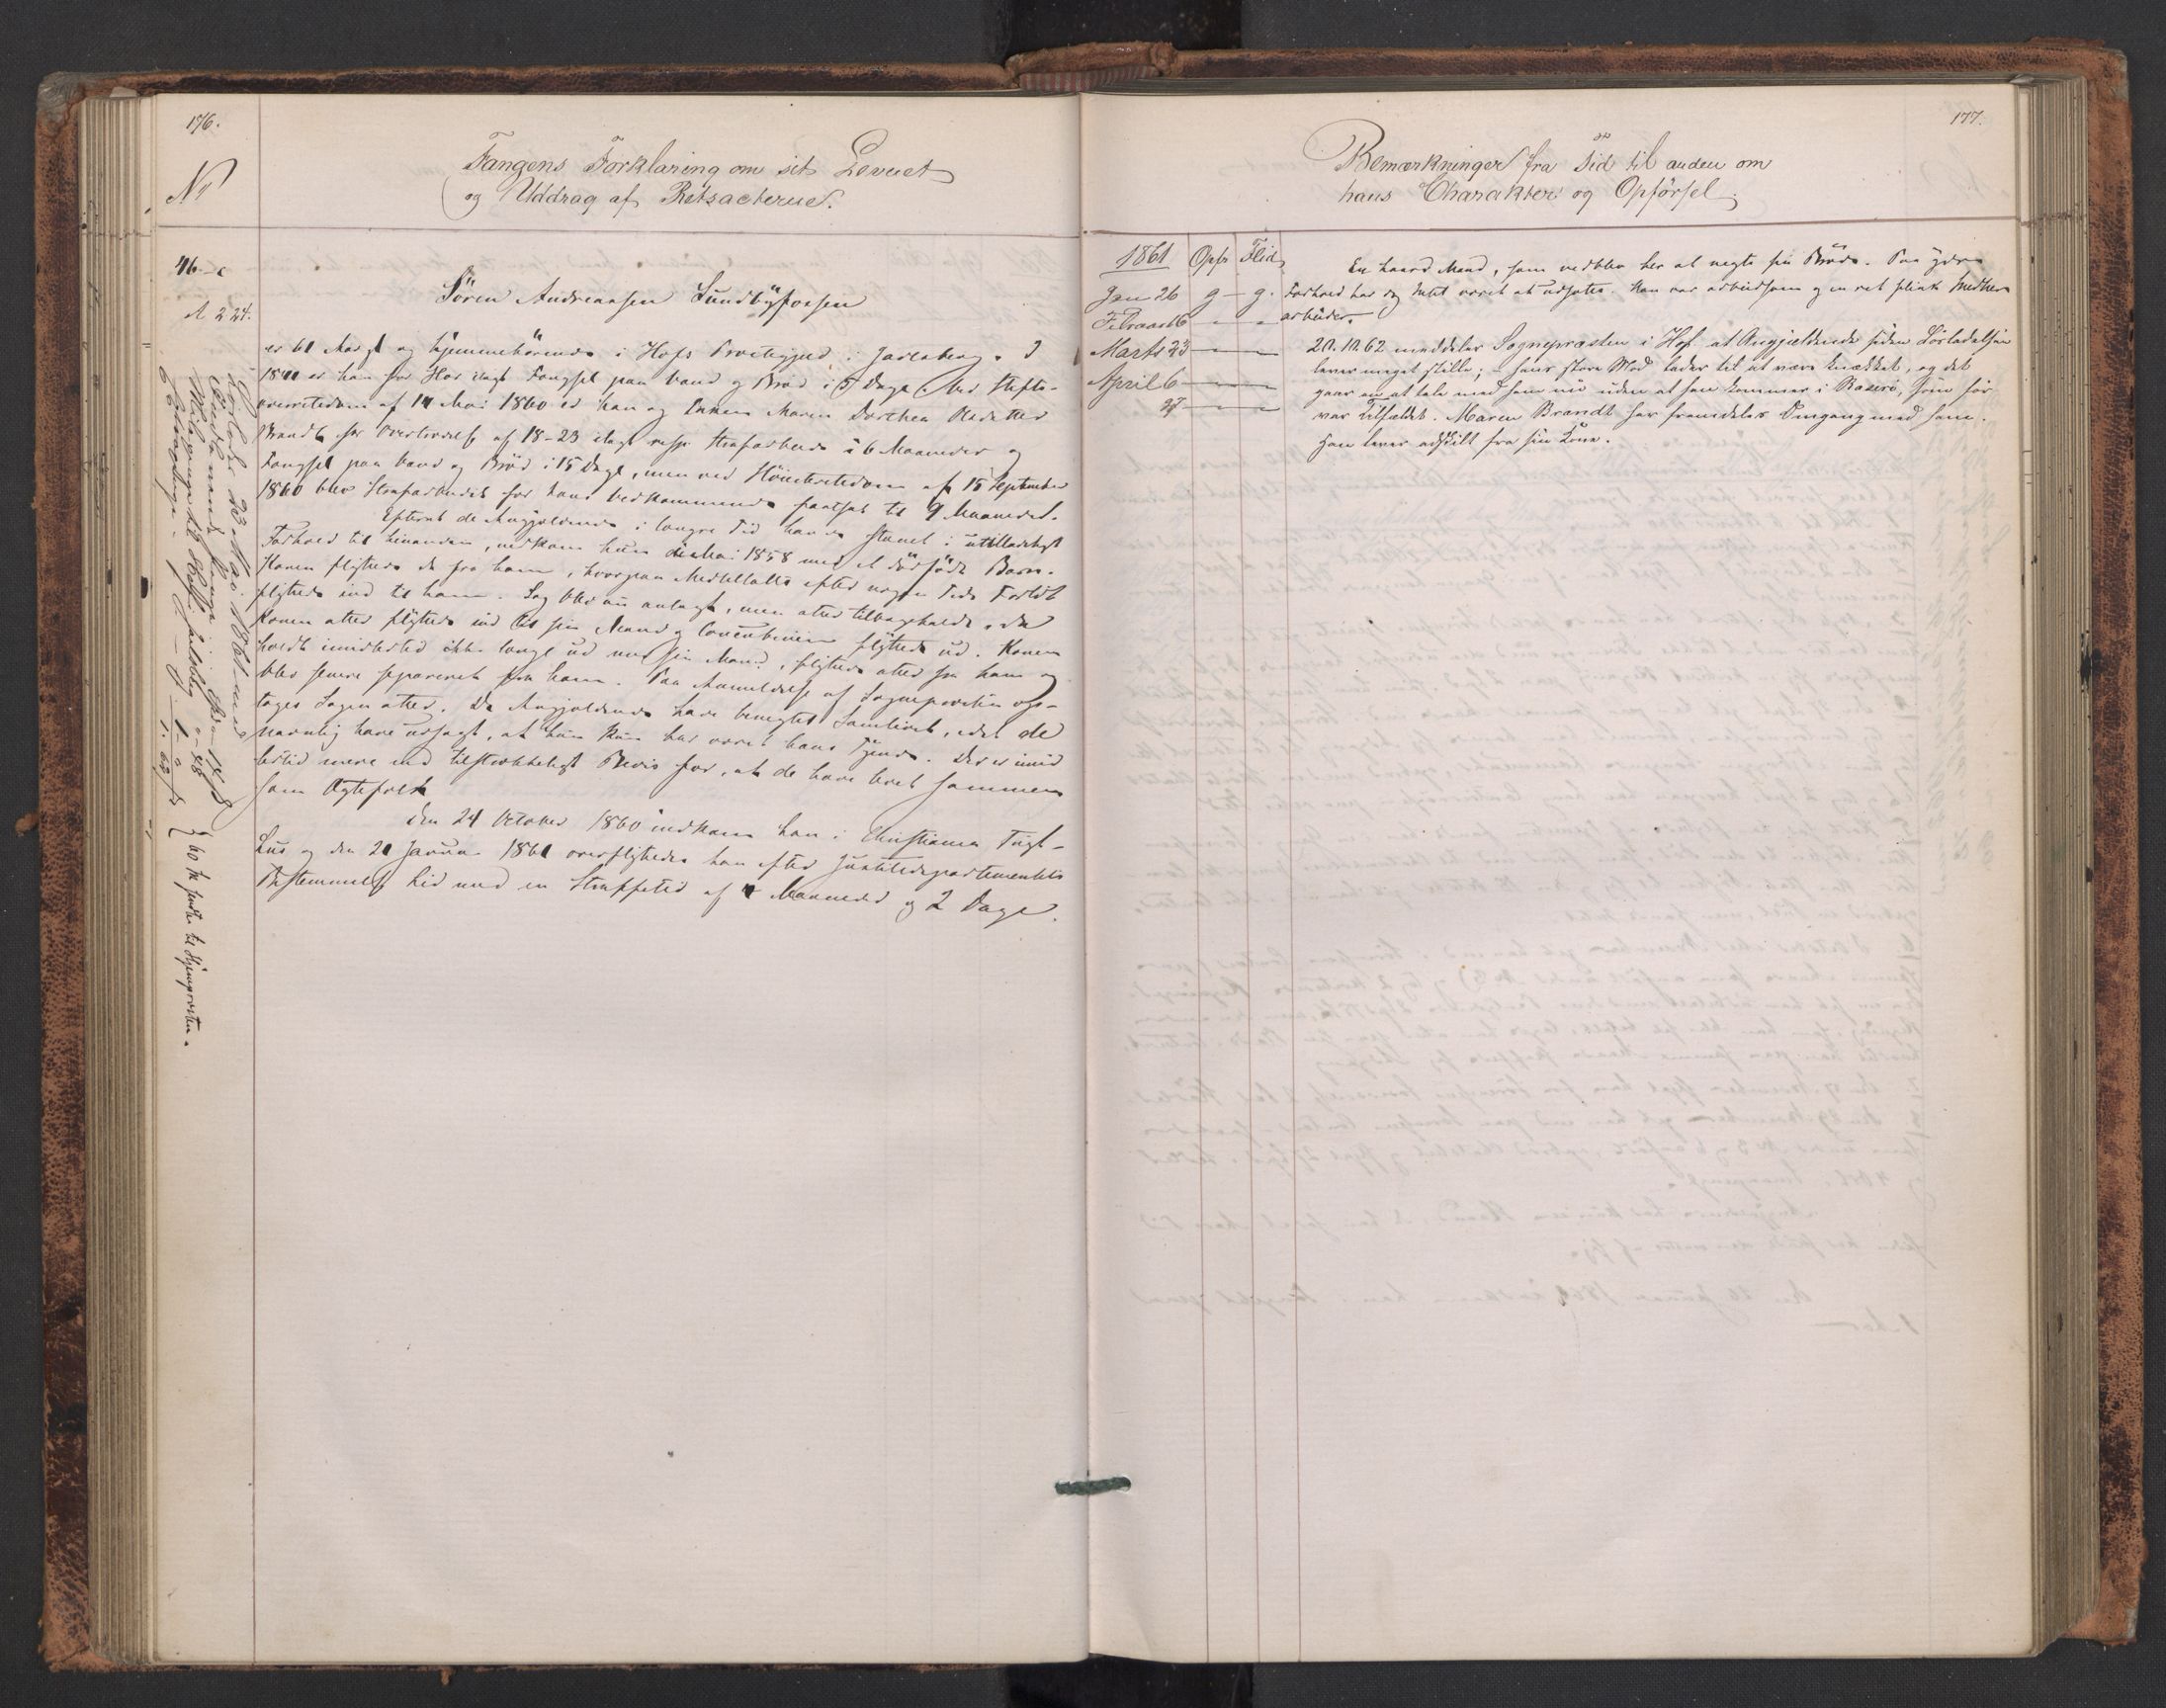 176.
Nr
Fangens Forklaring om sit Levnet
og Uddrag af Retsacterne.
46. c
A 224.
Sören Andreassen Sundbyfossen
er 61 Aar gl og hjemmehörende i Hofs Præstegjeld i Jarlsberg. I
18 er han for Hor ilagt Fængsel paa Vand og Bröd i 5 Dage. Ved Stifts-
overretsdom af 14 Mai 1860 er han og Enken Maren Dorthea
Brandt for Overtrædelse af 18-23 ilagt resp Strafarbeide i 6 Maaneder og
Fængsel paa Vand og Bröd i 15 Dage, men ved Höiesteretsdom af 15 September
1860 blev Strafarbeidet for hans Vedkommende fastsat til 9 Maaneder.
Efterat de Angjældende i længre Tid havde staaet i utilladeligt
Forhold til hinanden, nedkom hun i Mai 1858 med et dödfödt Barn.
Konen flyttede da fra ham, hvorpaa Medtiltalte efter nogen Tids Forløb
flyttede ind til ham. Sag blev nu anlagt, men atter tilbagekaldt, da
Konen atter flyttede ind til sin Mand og Concubinen flyttede ud. Konen
holdt imidlertid ikke længe ud med sin Mand, flyttede atter fra ham og
blev senere separeret fra ham. Paa Anmeldelse af Sognepresten op-
toges Sagen atter. De Angjældende have benegtet Samlivet, idet de
navnlig have udsagt, at hun kun har været hans Tjener. Der er imid
lertid mere end tilstrækkeligt Bevis for, at de have levet sammen
som Ægtefolk
Den 24 October 1860 indkom han i Christiania Tugt-
hus og den 21 Januar 1861 overflyttedes han efter Justitsdepartementets
Bestemmelse hid med en Straffetid af 4 Maaneder og 2 Dage.
Löslodes 23 Mai 1861 med
60 sk sendte til Hjemprosten.
177.
Bemærkninger fra Tid til anden om
hans Charakter og Opförsel.
1861 Opfr Flid
Jan 26 g – g.
Februar 16 – –
Marts 23 – –
April 6 – –
27 – –
En haard Mand, som vedblev her at negte sin Bröde. Paa ydre
Forhold har dog Intet været at udsætte. Han var arbeidsom og en ret flink
arbeider.
20.10.62 meddeler Sognepræsten i Hof at Angjældende siden Lösladelsen
lever meget stille; – hans store Mod lader til at være knækket, og det
gaar an at tale med ham nu uden at han kommer i Raseri, som för
var Tilfældet. Maren Brandt har fremdeles Omgang med ham.
Han lever adskilt fra sin Kone.